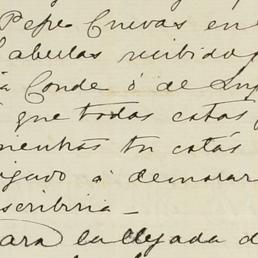 Pepe Cuevas en
abulas recibido
Conde ó de Lu
que todas estas
mientras tu estás
igado a demorar
scribiria_
ara la llegada d